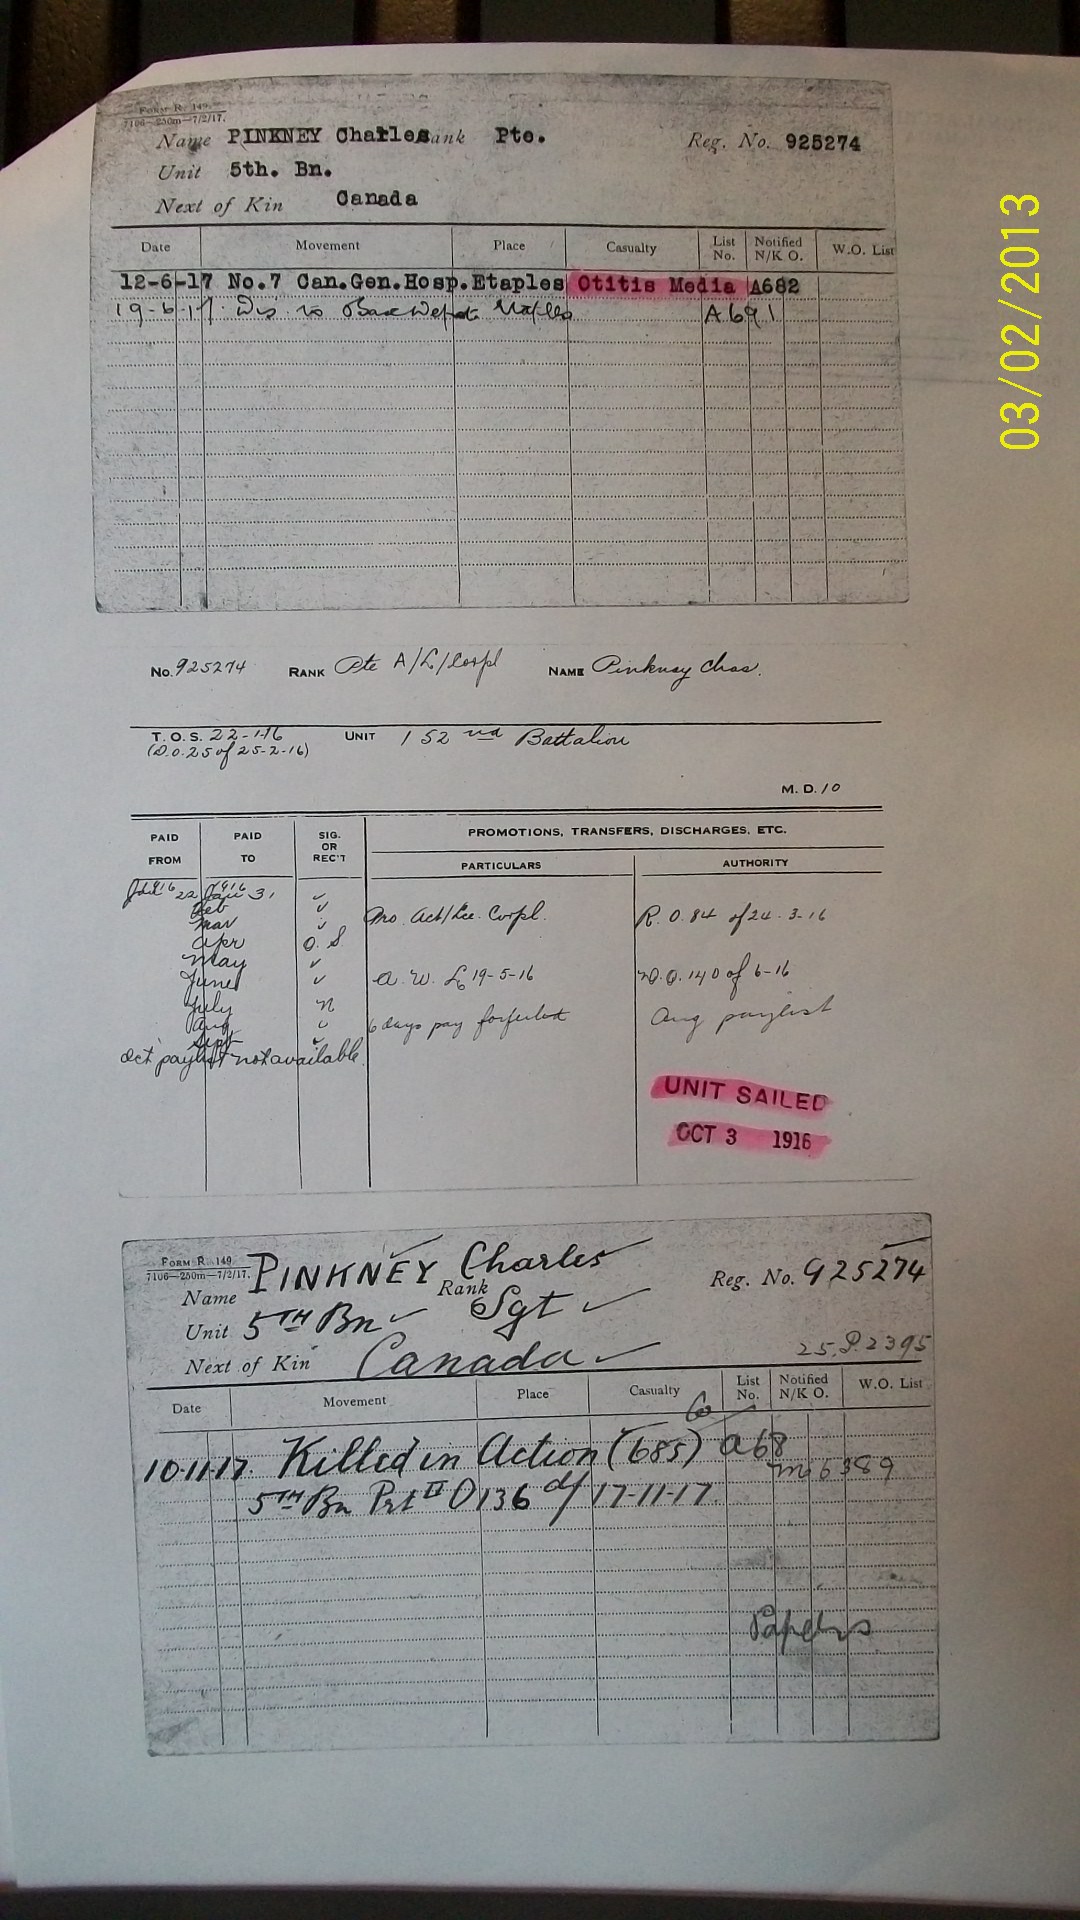 FORM R. 149.
7106—250m—7/2/17.
Name PINKNEY Charles Rank Pte. Reg. No. 925274
Unit 5th. Bn.
Next of Kin Canada
Date Movement Place Casualty List No. Notified N/K O. W.O. List
12-6-17 No.7 Can.Gen.Hosp.Etaples Otitis Media A682
19-6-17. Dis to Base Depot Etaples A691
03/02/2013
No. 925274 RANK Pte A/L/Corpl NAME Pinkney Chas.
T. O. S. 22-1-16 UNIT 152nd Battalion
(D.O. 25 of 25-2-16)
M. D. 10
PAID FROM PAID TO SIG. OR REC'T PROMOTIONS, TRANSFERS, DISCHARGES, ETC.
PARTICULARS AUTHORITY
1916 22 1916 Jan 31 ✓
Feb ✓
Mar ✓ Pro. Act/Lce. Corpl. R. O. 84 of 24-3-16
Apr O. S
May ✓
June ✓ A. W. L 19-5-16 D.O. 140 of 6-16
July n
Aug ✓ 6 days pay forfeited Aug paylist
Sept ✓
Oct paylist not available
UNIT SAILED
OCT 3 1916
FORM R. 149
7106—250m—7/2/17.
Name PINKNEY Charles Reg. No. 925274
Unit 5TH Bn Rank Sgt
Next of Kin Canada 25.P.2395
Date Movement Place Casualty List No. Notified N/K O. W.O. List
10-11-17. Killed in Action (685) A68
5TH Bn Prt II O 136 d/ 17-11-17. m6389
Papers